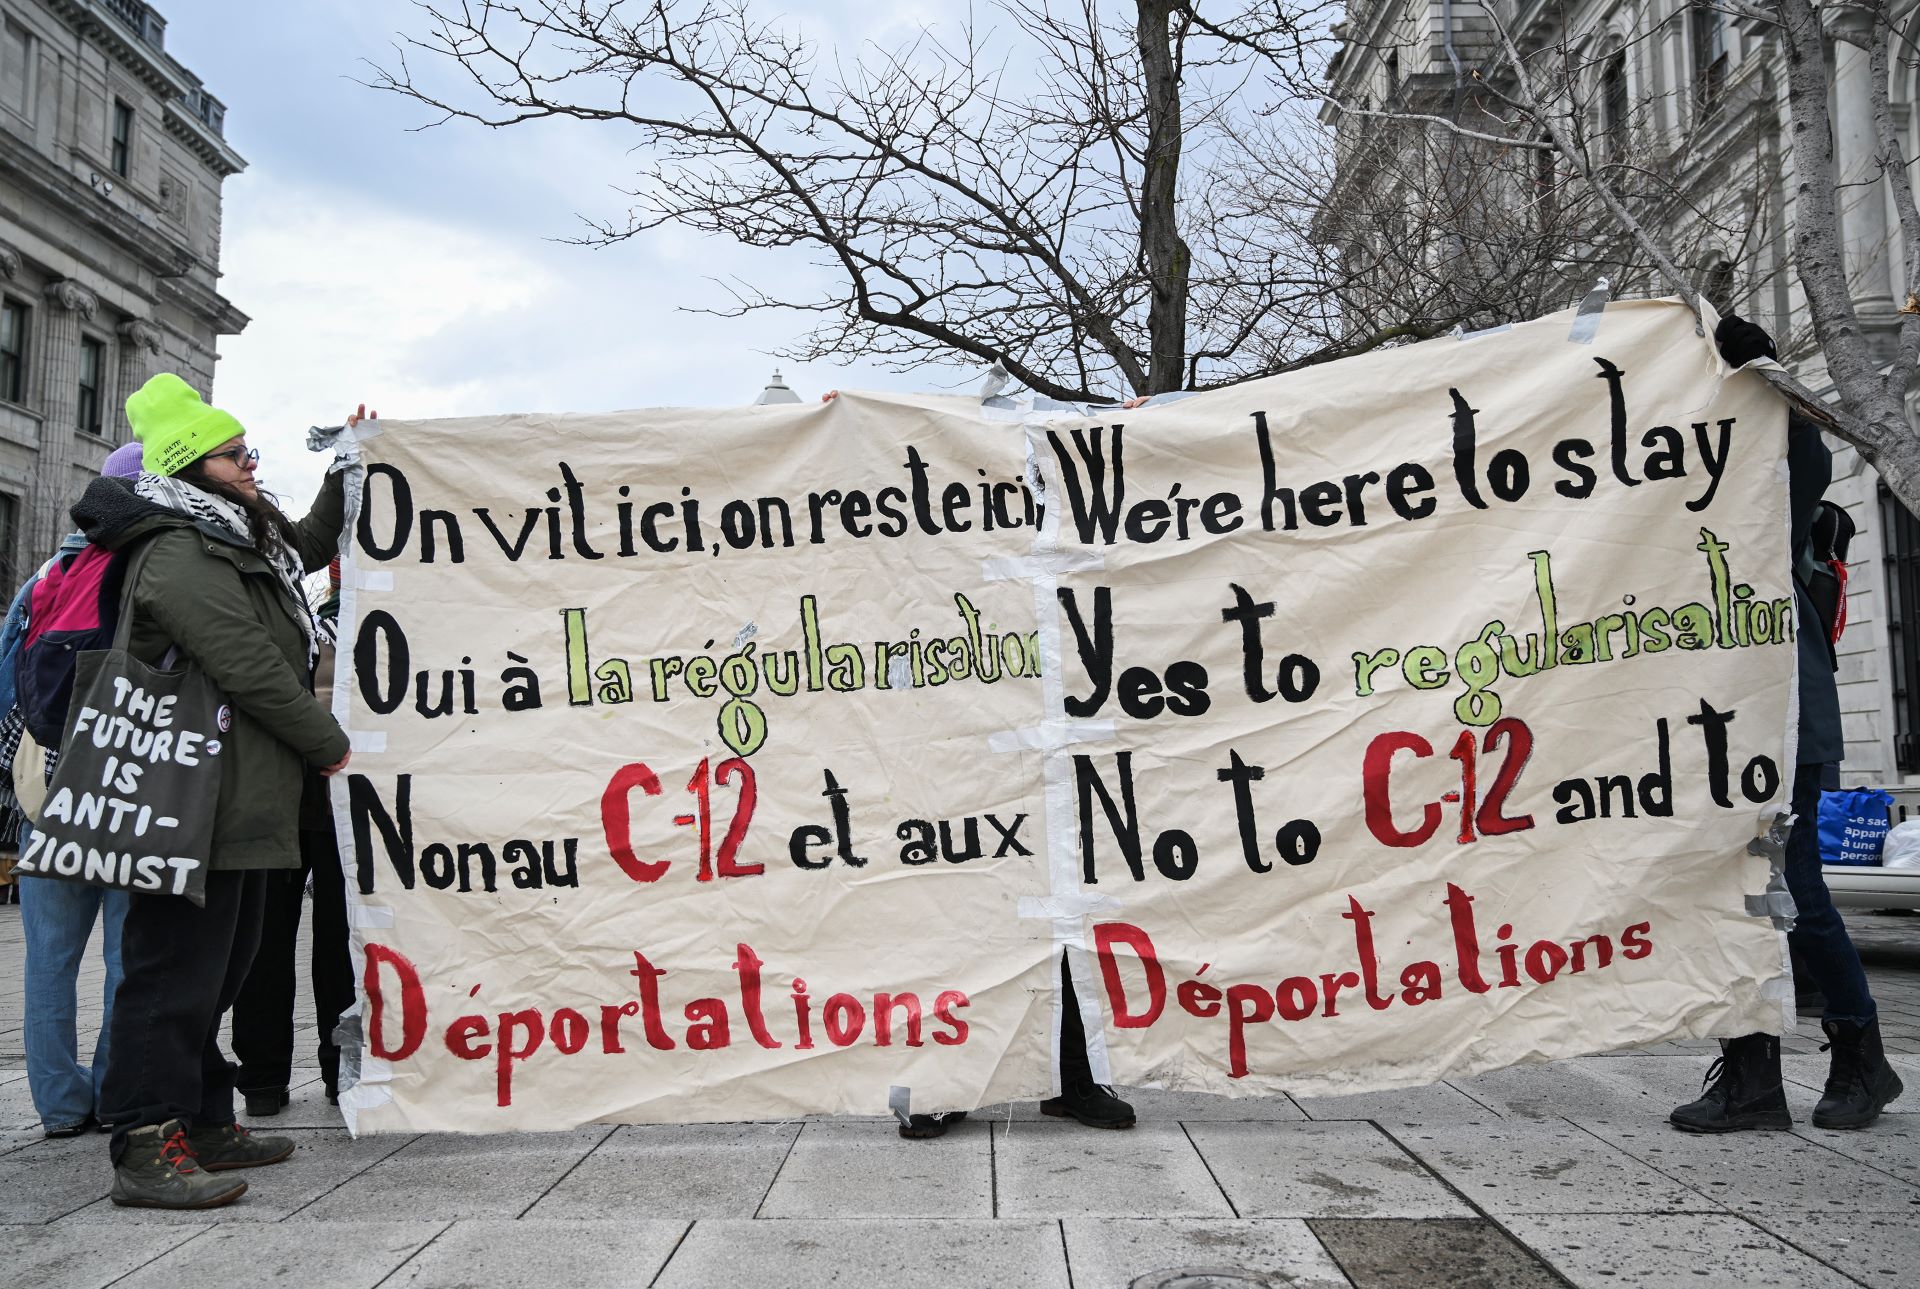 On vit ici, on reste ici,
Oui à la régularisation
Non au C-12 et aux
Déportations
We're here to stay
Yes to regularisation
No to C-12 and to
Déportations
I HATE A
NEUTRAL
ASS BITCH
THE
FUTURE
IS
ANTI-
ZIONIST
ce sac
appart
à une
person